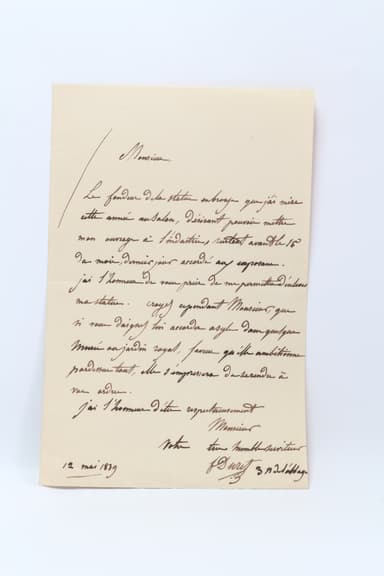 Monsieur
Le fondeur de la statue en bronze que j'ai mise
cette année au Salon, désirant pouvoir mettre
mon ouvrage à l'industrie, avant le 15
du mois, dernier jour accordé aux
j'ai l'honneur de vous prier de me permettre d'enlever
ma statue. croyez cependant Monsieur, que
si vous daignez lui accorder asyle dans quelque
Musée ou jardin royal, faveur qu'elle ambitionne
par dessus tout, elle s'empressera de se rendre à
vos ordres.
j'ai l'honneur d'être respectueusement
Monsieur
Votre très humble serviteur
f Duret
12 mai 1839